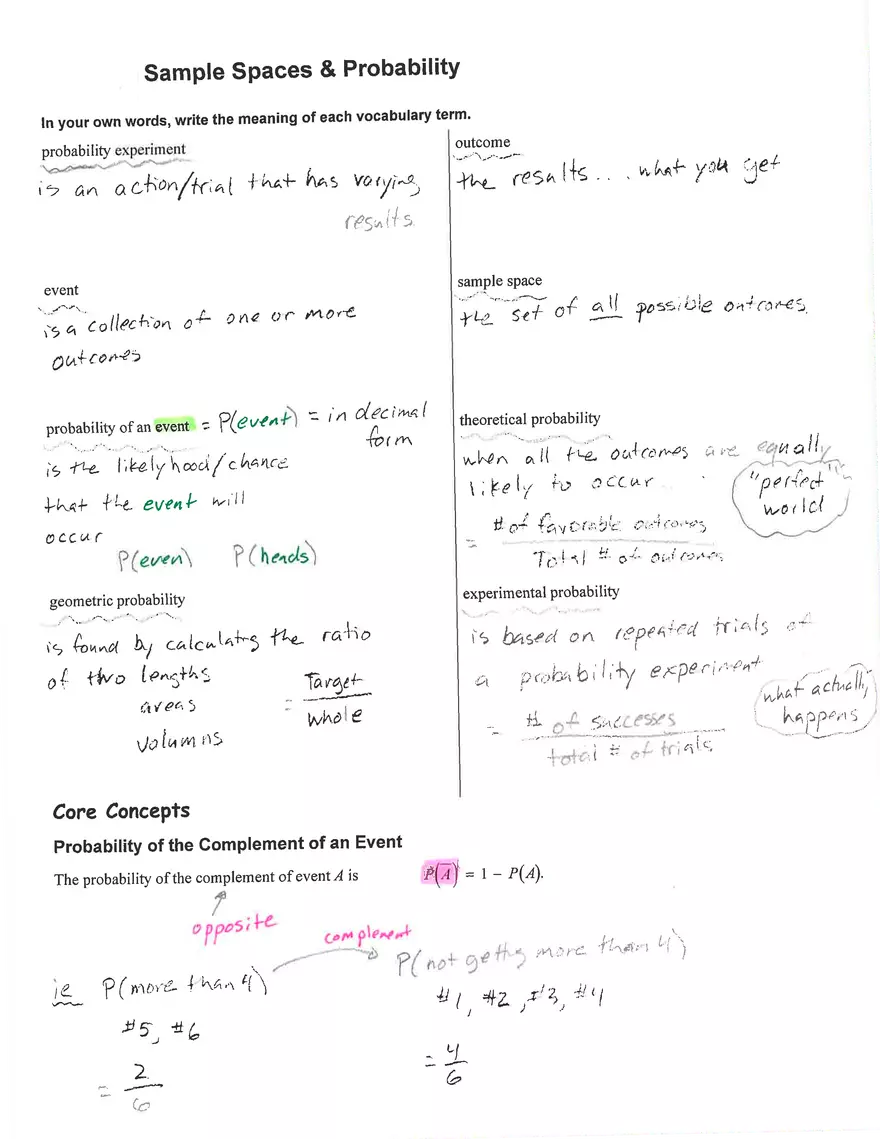 Sample Spaces & Probability
In your own words, write the meaning of each vocabulary term.
probability experiment
is an action/trial that has varying
results.
outcome
the results . . . what you get
event
is a collection of one or more
outcomes
sample space
the set of all possible outcomes.
probability of an event = P(event) = in decimal
form
is the likelyhood/chance
that the event will
occur
P(even) P(heads)
theoretical probability
when all the outcomes are equally
likely to occur
"perfect"
world
= # of favorable outcomes
Total # of outcomes
geometric probability
is found by calculatng the ratio
of two lengths
areas
volumns
= Target
whole
experimental probability
is based on repeated trials of
a probability experiment
what actually
happens
= # of successes
total # of trials
Core Concepts
Probability of the Complement of an Event
The probability of the complement of event A is P(A̅) = 1 − P(A).
opposite
complement
ie P(more than 4)
P(not gettng more than 4)
#5, #6
#1, #2, #3, #4
= 2
6
= 4
6